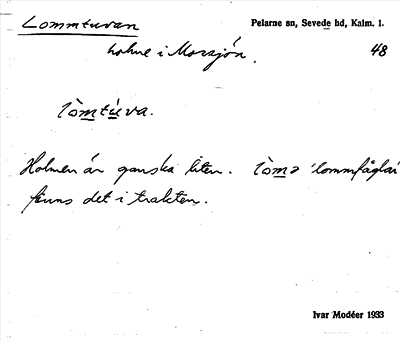 Lommtuvan Pelarne sn, Sevede hd, Kalm. l.
holme i Mossjön. 48
lòmtùva.
Holmen är ganska liten. lòmə 'lommfåglar'
finns det i trakten.
Ivar Modéer 1933